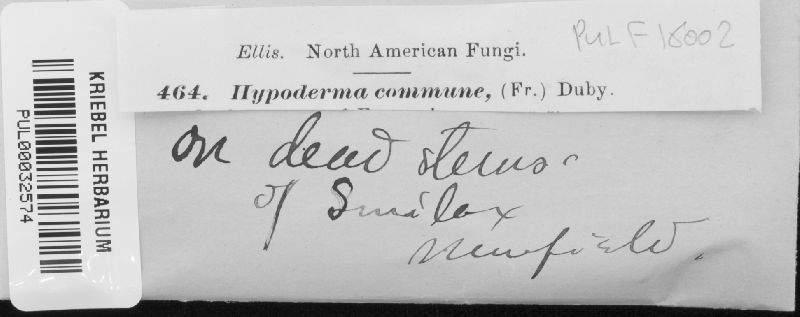 KRIEBEL HERBARIUM
PUL00032574
PUL F 18002
Ellis. North American Fungi.
464. Hypoderma commune, (Fr.) Duby.
on dead stems
of Smilax
Newfield.